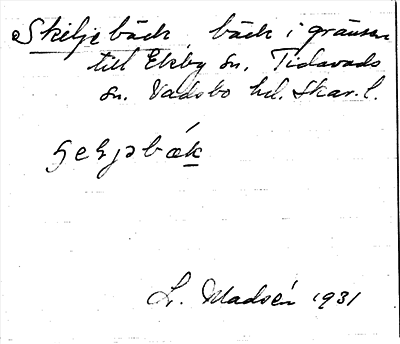 Skiljebäck, bäck i gränsen
till Ekby sn. Tidavads
sn. Vadsbo hd. Skar. l.
L. Madsén 1931